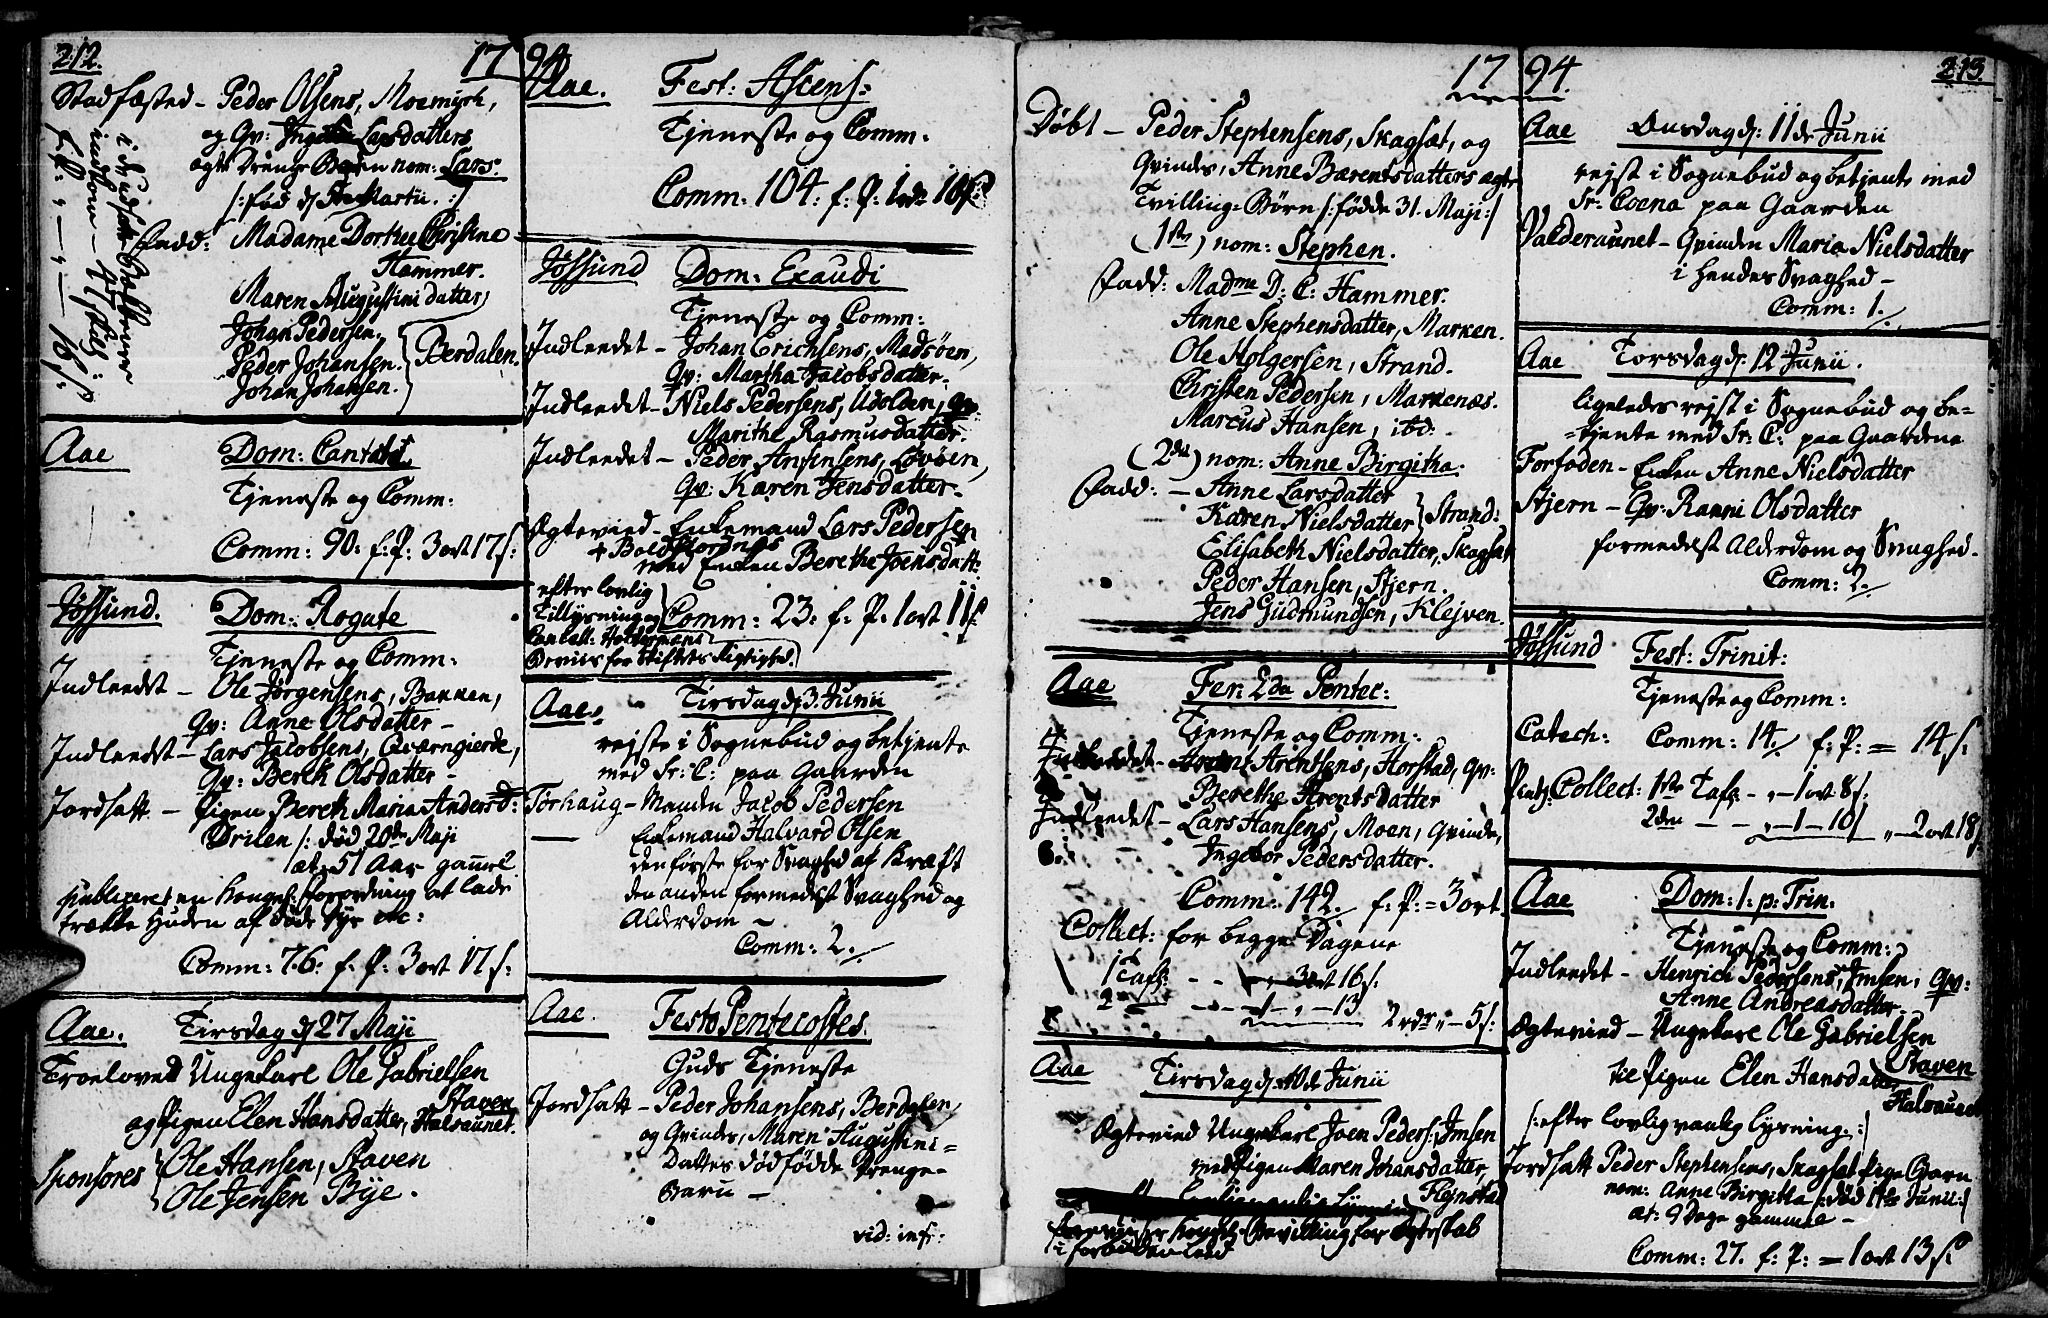 212.
17 94.
Stadfæsted - Peder Olsens, Moemyrh,
og Qv: Larsdatters
ægte Drenge Barn nom: Lars.
/: fød d Martii. :/
Fadd: Madame Dorthee Christine
Hammer.
Maren Auguſtini datter
Johan Pedersen.
Peder Johansen. Berdalen.
Johan Johansen.
Aae Dom: Cantate
Tjeneste og Comm:
Comm: 90: f: P: 3 ort 17 s:
Jøssund. Dom: Rogate
Tjeneste og Comm:
Indleedet - Ole Jørgensens, Bakken,
Qv: Anne Olsdatter -
Indleedet - Lars Jacobsens, Qværngierde,
Qv: Bereth Olsdatter -
Jordsatt - Pigen Bereth Maria Andersd:
Ørilen /: død 20de Maji
æt: 51 Aar gammel
publiceret en Kongel: Forordning at lade
trække Huden af døde Dyr etc:
Comm: 76: f: P: 3 ort 17 s:
Aae. Tirsdag d 27 Maji
Troelovet Ungekarl Ole Gabrielsen
Staven
og Pigen Elen Hansdatter, Halvaunet.
Sponsores Ole Hansen, Staven
Ole Jensen Bye.
Aae. Fest: Ascens:
Tjeneste og Comm.
Comm: 104: f: P: 1 rdr 16 s:
Jøssund Dom: Exaudi
Tjeneste og Comm:
Indleedet - Johan Erichsens, Madsøen,
Qv: Martha Jacobsdatter.
Indleedet - Niels Pedersens, Udolden, Qv:
Marithe Rasmusdatter.
Indleedet - Peder Ansensens, Lovøen,
Qv: Karen Jensdatter.
Ægteviet - Enkemand Lars Pedersen
med Enken Berethe Joensdatt:
efter lovlig
Tillysning og Comm: 23. f. P. 1 ort 11 s:
Beviis for Skiftets Rigtighed.
Aae. Tirsdag d. 3. Junii
rejste i Sognebud og betjente
med Sr: C: paa Gaarden
Torhaug - Manden Jacob Pedersen
Enkemand Halvard Olsen
den første for Svaghed af Kræft
den anden formedelst Svaghed og
Alderdom -
Comm: 2.
Aae. Festo Pentecostes.
Guds Tjeneste
Jordsatt - Peder Johansens, Berdalen,
og Qvindes, Maren Augustini=
Datters dødfødde Drenge-
Barn -
vid: inf:
17 94.
213.
Døbt - Peder Stephensens, Skagsæt, og
Qvindes, Anne Bærentsdatters ægte
Tvilling=Børn /: fødde 31. Maji :/
(1ste) nom: Stephen.
Fadd: Madme D: C: Hammer.
Anne Stephensdatter, Marken.
Ole Holgersen, Strand.
Christen Pedersen, Markenæs.
Marcus Hansen, ibd:
(2det) nom: Anne Birgitha.
Fadd: - Anne Larsdatter
Karen Nielsdatter Strand:
Elisabeth Nielsdatter, Skagsæt
Peder Hansen, Stjern.
Jens Gudmundsen, Klejven.
Aae Fer: 2da Pentec:
Tjeneste og Comm:
Indleedet - Arent Arentsens, Horstad, Qv:
Berethe Arentsdatter
Indleedet - Lars Hansens, Moen, Qvinde,
Ingebor Pedersdatter.
Comm: 142. f: P: = 3 ort
Collect: for begge Dagene
1 Tafl: - - 3 ort 16 s.
2 - - 1 - 13
2 rdr - 5 s:
Aae Tirsdag d: 10de Junii
Ægteviet Ungekarl Joen Peders: Imsen
med Pigen Maren Johansdatter,
Rejnstad
Bevilling for Ægteskab
i forbuden leed
Aae Onsdag d: 11de Junii
rejst i Sognebud og betjente med
Sr: Coena paa Gaarden
Valderaunet - Qvinden Maria Nielsdatter
i hendes Svaghed -
Comm: 1.
Aae Torsdag d: 12 Junii.
ligeledes rejst i Sognebud og be=
=tjente med Sr: C: paa Gaardene
Forfoden - Enken Anne Nielsdatter
Stjern - Qv: Ranni Olsdatter
formedelst Alderdom og Svaghed.
Comm: 2.
Jøssund Fest: Trinit:
Tjeneste og Comm:
Catech: Comm: 14. f: P: = 14 s.
Collect: 1ste Tafl - - 1 ort 8 s:
2den - - 1 - 10 s - 2 ort 18 s
Aae Dom: 1. p: Trin.
Tjeneste og Comm:
Indleedet - Henrich Pedersens, Imsen, Qv:
Anne Andreasdatter
Ægteviet - Ungekarl Ole Gabrielsen
Staven
til Pigen Elen Hansdatter
Halvaunet
/: efter lovlig vanlig Lysning. :/
Jordsatt Peder Stephensens, Skagsæt Pige Barn
nom: Anne Birgitta /: død Junii :/
æt: 9 Dage gammel -
Comm: 27. f: P: = 1 ort 13 s.